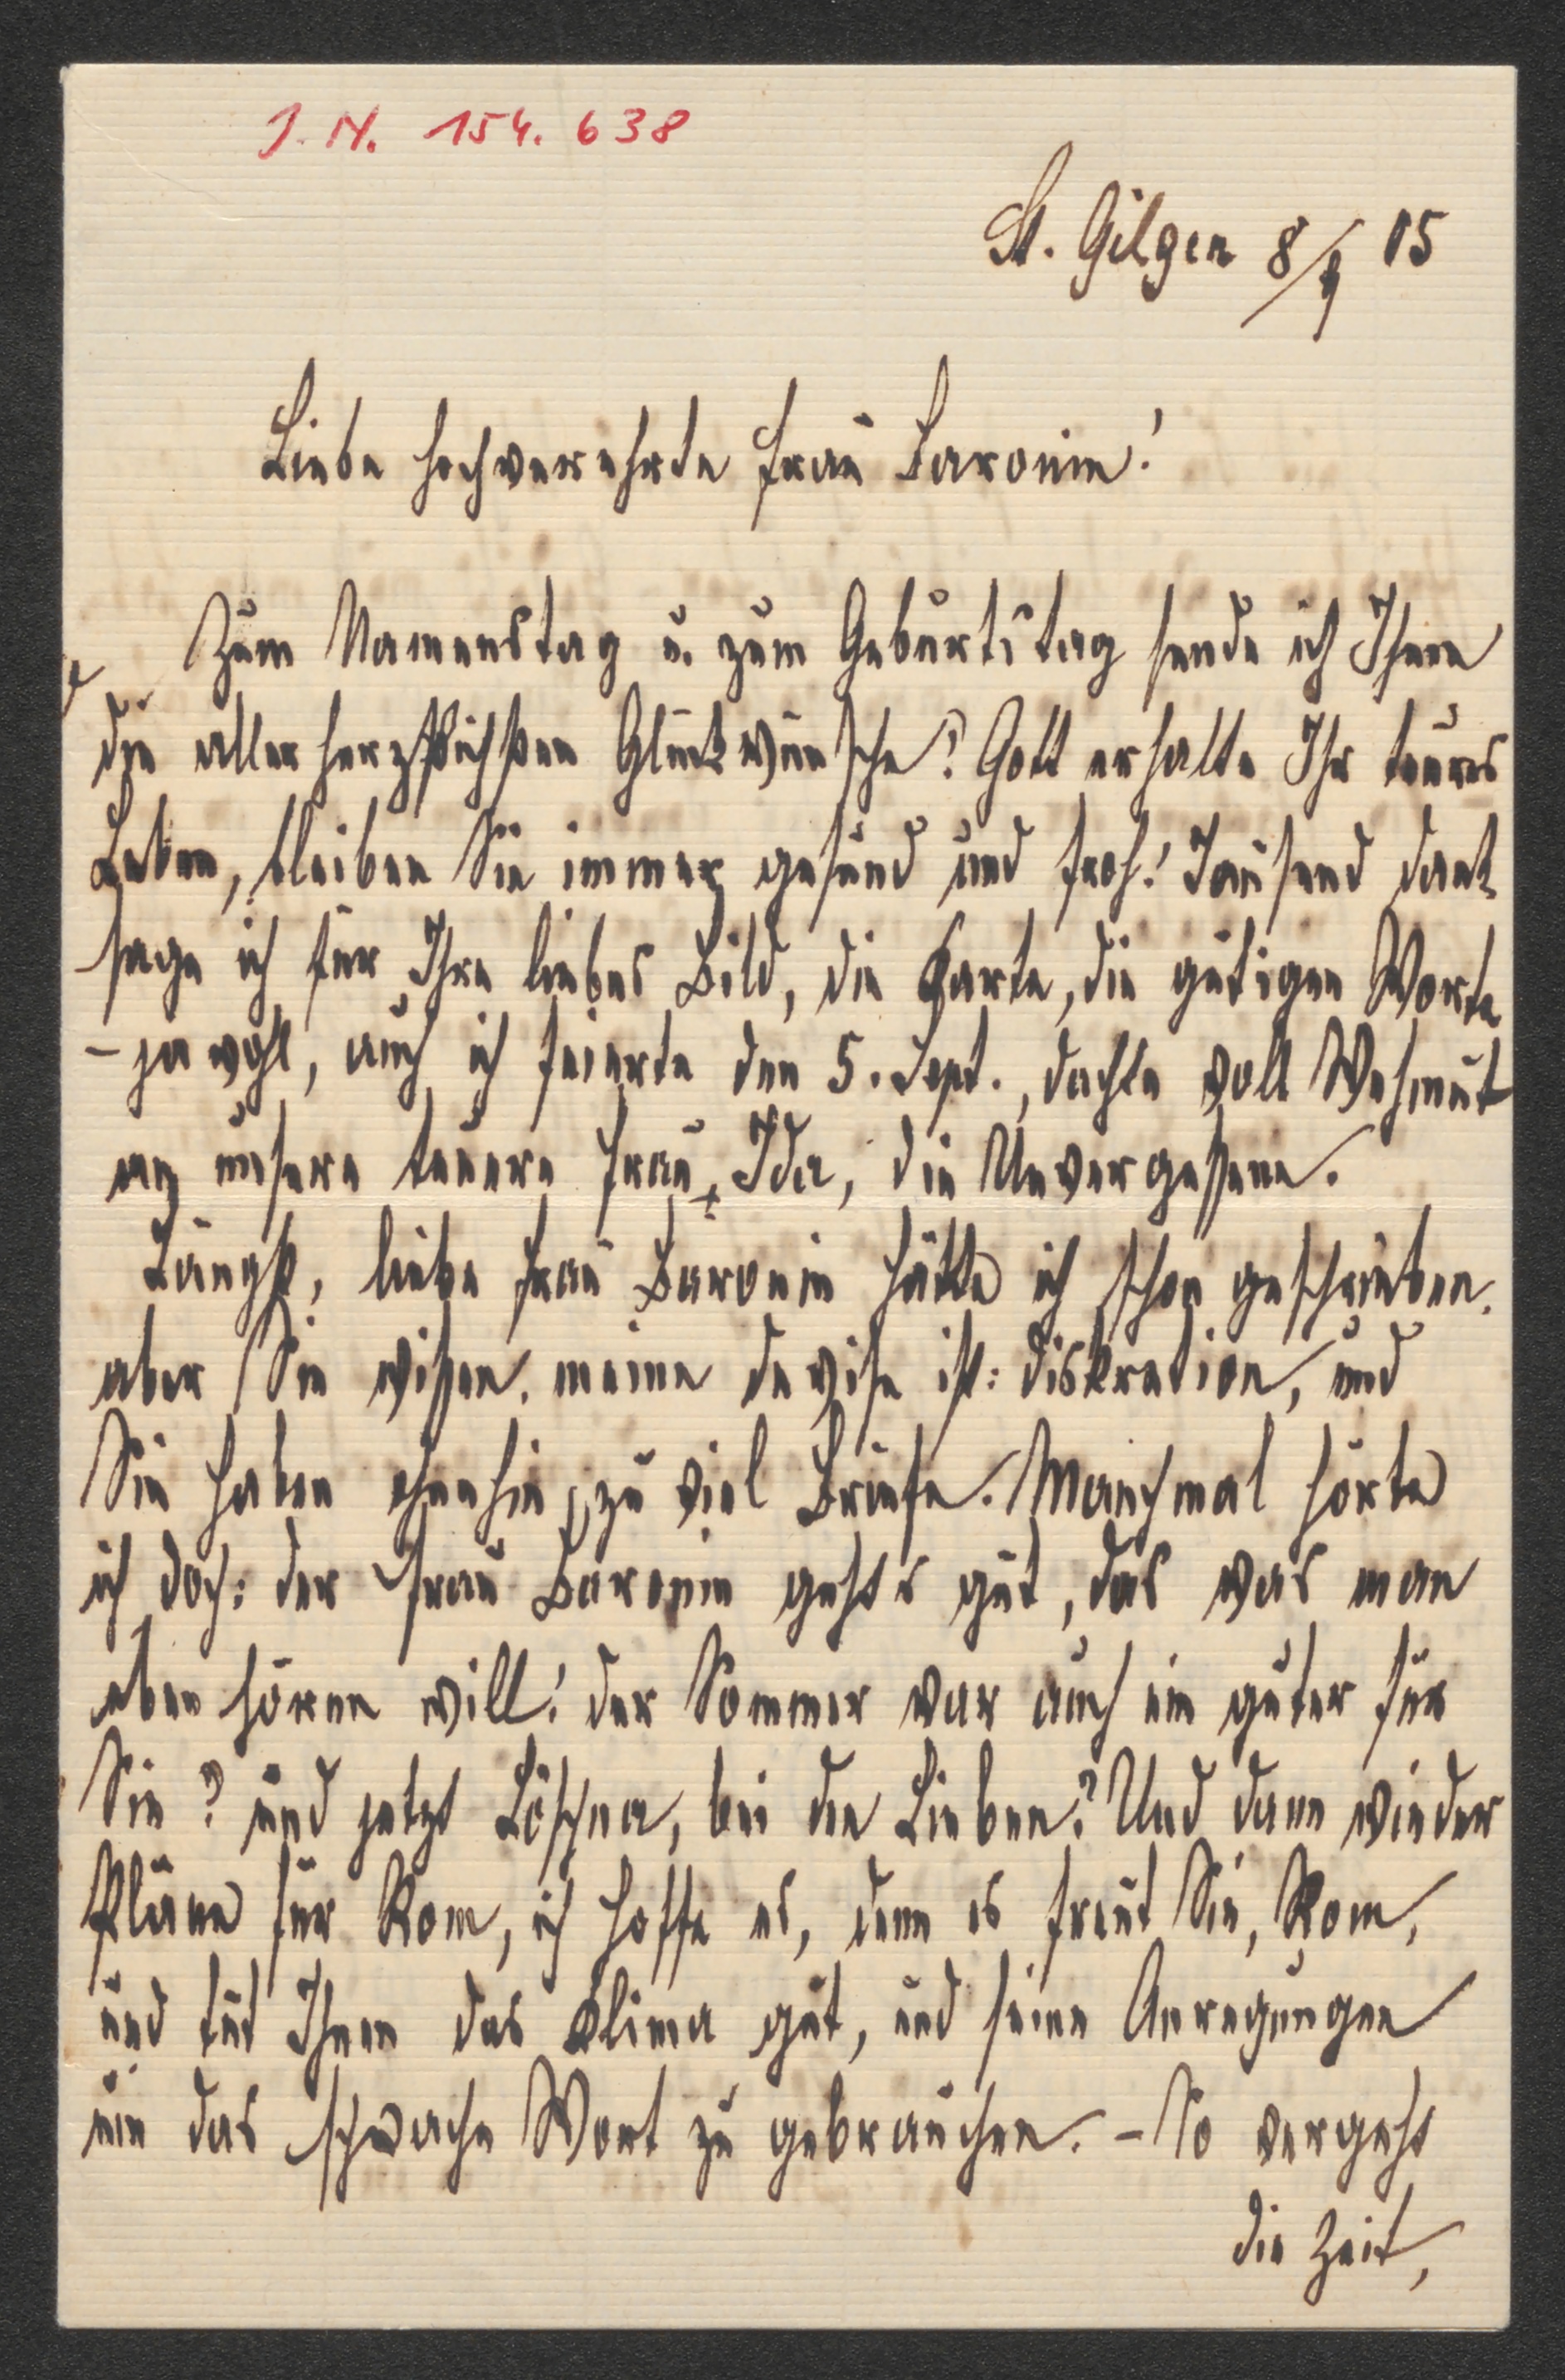 J. N. 154.638
St. Gilgen 8/9 05
Liebe hochverehrte Frau Baronin!
Zum Namenstag u. zum Geburtstag sende ich Ihnen
die allerherzlichsten Glückwünsche! Gott erhalte Ihr teures
Leben, bleiben Sie immer gesund und froh! Tausend dank
sage ich für Ihre liebes Bild, die Karte, die gütigen Worte
– ja wohl, auch ich feierte den 5. Sept., dachte voll Wehmut
an unsere teuere Frau Ida, die Unvergessene.
Längst, liebe Frau Baronin hätte ich schon geschrieben.
aber Sie wissen, meine devise ist: diskretion, und
Sie haben ohnehin zu viel Briefe. Manchmal hörte
ich doch: der Frau Baronin geht's gut, das was man
eben hören will! der Sommer war auch ein guter für
Sie? und jetzt Löschna, bei den Lieben? Und dann wieder
Pläne für Rom, ich hoffe es, denn es freut Sie, Rom,
und tut Ihnen das Klima gut, und seine Anregungen
um das schwache Wort zu gebrauchen. – So vergeht
die Zeit,